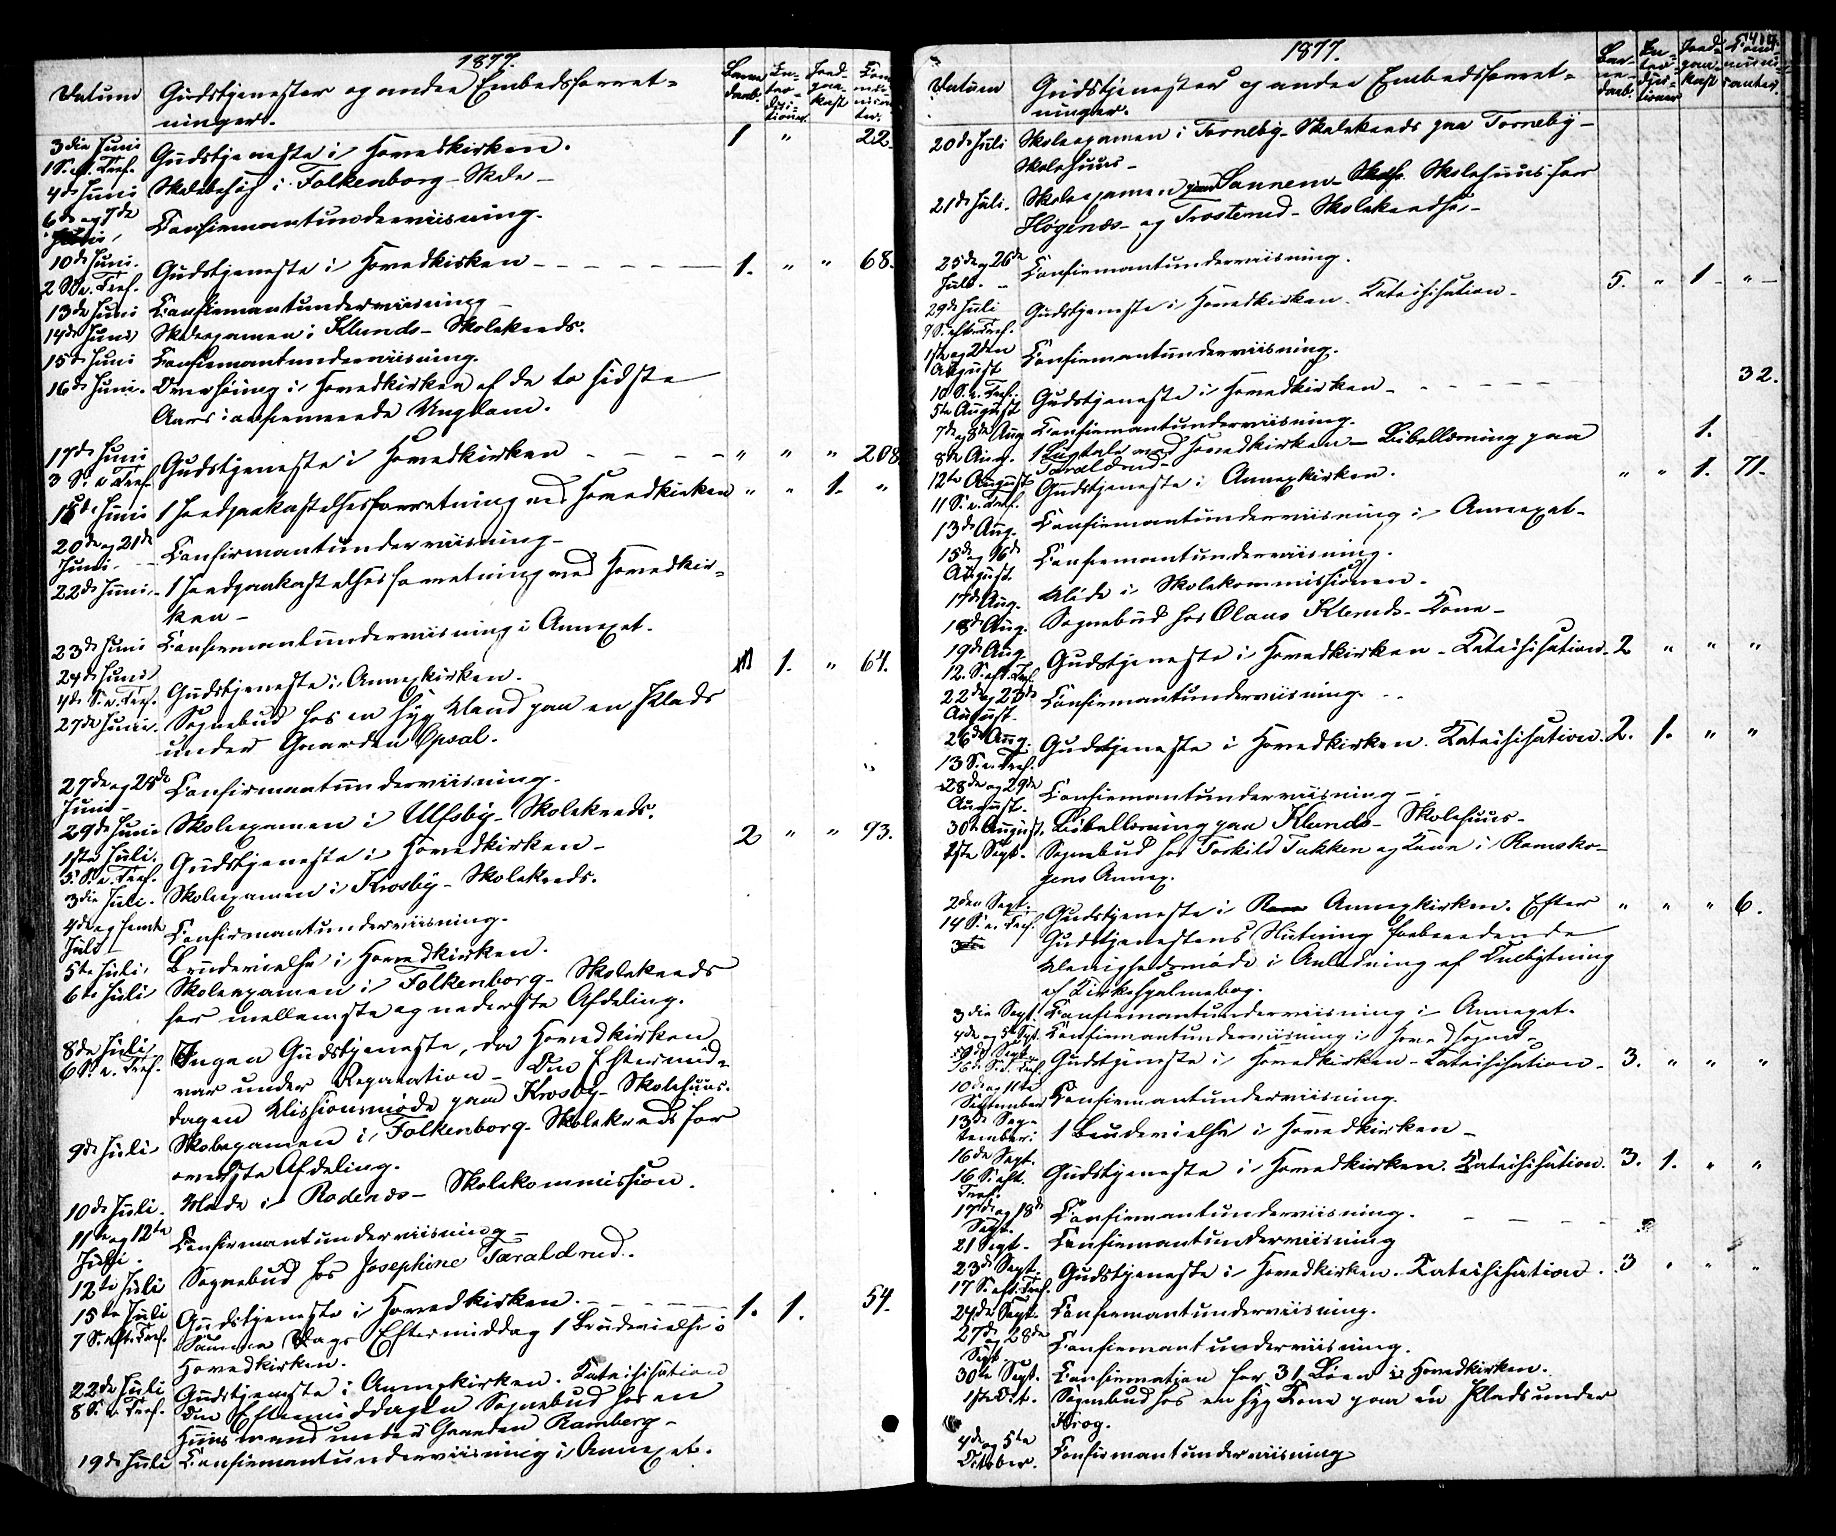 1877.
Datum
Gudstjenester og andre Embedsforret-
ninger.
Barne
daab.
In-
tro-
ducti-
tioner.
Jord-
paa-
kast
Com-
mu-
nican-
ter.
3die Juni
1 S. e. Tref.
Gudstjeneste i Hovedkirken.
1 " 22.
4de Juni
Skolebesøg i Folkenborg-Skole-
6te og 7de
Juni,
Confirmantunderviisning.
10de Juni.
2 S. e. Tref.
Gudstjeneste i Hovedkirken
1. " " 68.
13de Juni
Confirmantunderviisning-
14de Juni
Skoleexamen i Klunds-Skolekreds.
15de Juni
Confirmantunderviisning.
16de Juni.
Overhøring i Hovedkirken af de to sidste
Aars confirmerede Ungdom.
17de Juni
3 S. e. Tref.
Gudstjeneste i Hovedkirken
" " " 208
18de Juni
1 Jordpaakastelsesforretning ved Hovedkirken
" " 1. "
20de og 21de
Juni.
Confirmantunderviisning-
22de Juni.
1 Jordpaakastelsesforretning ved Hovedkir-
ken-
23de Juni
Confirmantunderviisning i Annexet.
24de Juni
4de S. e. Tref.
Gudstjeneste i Annexkirken.
1. " 64.
27de Juni.
Sognebud hos en syg Mand paa en Plads
under Gaarden Opsal.
27de og 28de
Juni-
Confirmantunderviisning.
"
29de Juni
Skoleexamen i Ulfsby-Skolekreds.
1ste Juli.
5. S. e. Tref.
Gudstjeneste i Hovedkirken-
2 " " 93.
3die Juli.
Skoleexamen i Krosby-Skolekreds.
4de og femte
Juli
Confirmantunderviisning.
5te Juli,
Brudevielse i Hovedkirken.
6te Juli
Skoleexamen i Folkenborg-Skolekreds
for mellemste og nederste Afdeling.
8de Juli,
6 S. e. Tref.
Ingen Gudstjeneste, da Hovedkirken
var under Reparation- Om Eftermid-
dagen Missionsmøde paa Krosby-Skolehuus.
9de Juli
Skoleexamen i Folkenborg-Skolekreds for
øverste Afdeling.
10de Juli.
Møde i Rødenæs-Skolekommission.
11te og 12te
Juli.
Confirmantunderviisning-
12te Juli
Sognebud hos Josephine Taraldrud.
15de Juli
7 S. eft. Tref.
Gudstjeneste i Hovedkirken.
1. 1. 54.
Samme Dags Eftermiddag 1 Brudevielse i
Hovedkirken.
22de Juli
8 S. e. Tref.
Gudstjeneste i Annexkirken. Kateisisation
Om Eftermiddagen Sognebud hos en
Huusmand under Gaarden Ramberg-
19de Juli
Confirmantunderviisning i Annexet.
1877.
Datum
Gudstjenester og andre Embedsforret-
ninger.
Bar-
ne-
daab.
In-
tro-
duc-
tioner
Jord-
paa-
kast
Com-
muni-
canter.
20de Juli
Skoleexamen i Torneby-Skolekreds paa Torneby-
Skolehuus-
21de Juli.
Skoleexamen paa Sannem- Skolehuus for
Høgenæs- og Trosterud-Skolekredse,-
25de og 26de
Juli.
Confirmantunderviisning.
29de Juli
9 S. efter Tref.
Gudstjeneste i Hovedkirken. Kateisisation-
5. " 1 "
1ste og 2den
August
Confirmantunderviisning.
10 S. e. Tref.
5te August
Gudstjeneste i Hovedkirken-
32.
7de og 8de Aug
Confirmantunderviisning.
8de Aug.
1 Liigtale ved Hovedkirken- Bibellæsning paa
Taraldrud-
1.
12te August
11 S. e. Tref.
Gudstjeneste i Annexkirken.
" " 1. 71.
13de Aug.
Confirmantunderviisning i Annexet-
15de og 16de
August
Confirmantunderviisning.
17de Aug.
Møde i Skolekommissionen.
18de Aug.
Sognebud hos Olaus Klunds-Kone-
19de Aug.
12. S. eft. Tref.
Gudstjeneste i Hovedkirken-Kateisisation.
2 " " "
22de og 23de
August.
Confirmantunderviisning.
26de Aug.
13 S. e. Tref.
Gudstjeneste i Hovedkirken. Kateisisation.
2. 1. " "
28de og 29de
August.
Confirmantunderviisning-
30te August.
Bibellæsning paa Klunds-Skolehuus-
1ste Sept.
Sognebud hos Torkild Tukken og Kone i Rømsko-
gens Annex.
2den Sept.
14 S. e. Tref.
Gudstjeneste i Annexkirken. Efter
" " " 6.
Gudstjenestens Slutning forberedende
Menighedsmøde i Anledning af Ombytning
af Kirkesalmebog.
3die Sept.
Confirmantunderviisning i Annexet.
4de og 5te Sept.
Confirmantunderviisning i Hovedsognet-
9de Sept.
15de S. e. Tref.
Gudstjeneste i Hovedkirken-Kateisisation-
3. " " "
10de og 11te
September
Confirmantunderviisning.
13de Sep-
tember:
1 Brudevielse i Hovedkirken-
16de Sept.
16 S. eft.
Tref.
Gudstjeneste i Hovedkirken. Kateisisation.
3. 1. " "
17de og 18de
Sept.
Confirmantunderviisning.
21 Sept.
Confirmantunderviisning
23de Sept.
17 S. eft. Tref.
Gudstjeneste i Hovedkirken. Kateisisation.
3 " " "
24de Sept.
Confirmantunderviisning.
27de og 28de
Sept.
Confirmantunderviisning.
30te Sept.
Confirmation for 31 Børn i Hovedkirken.
1ste Oct.
Sognebud hos en syg Kone paa en Plads under
Krog.
4de og 5te
October.
Confirmantunderviisning